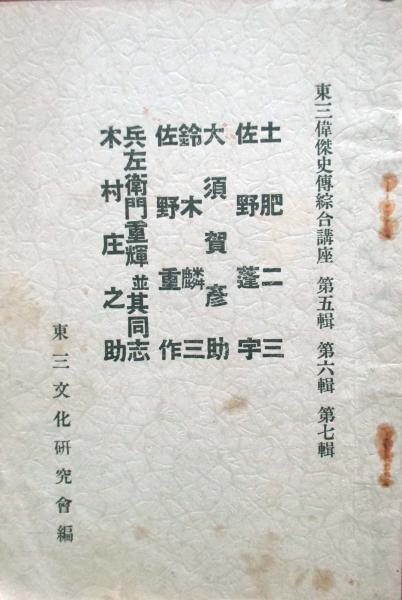 東三偉傑史傳綜合講座 第五輯 第六輯 第七輯
土肥二三
佐野蓬宇
大須賀彥助
鈴木麟三
佐野重作
兵左衛門重輝並其同志
木村庄之助
東三文化研究會編